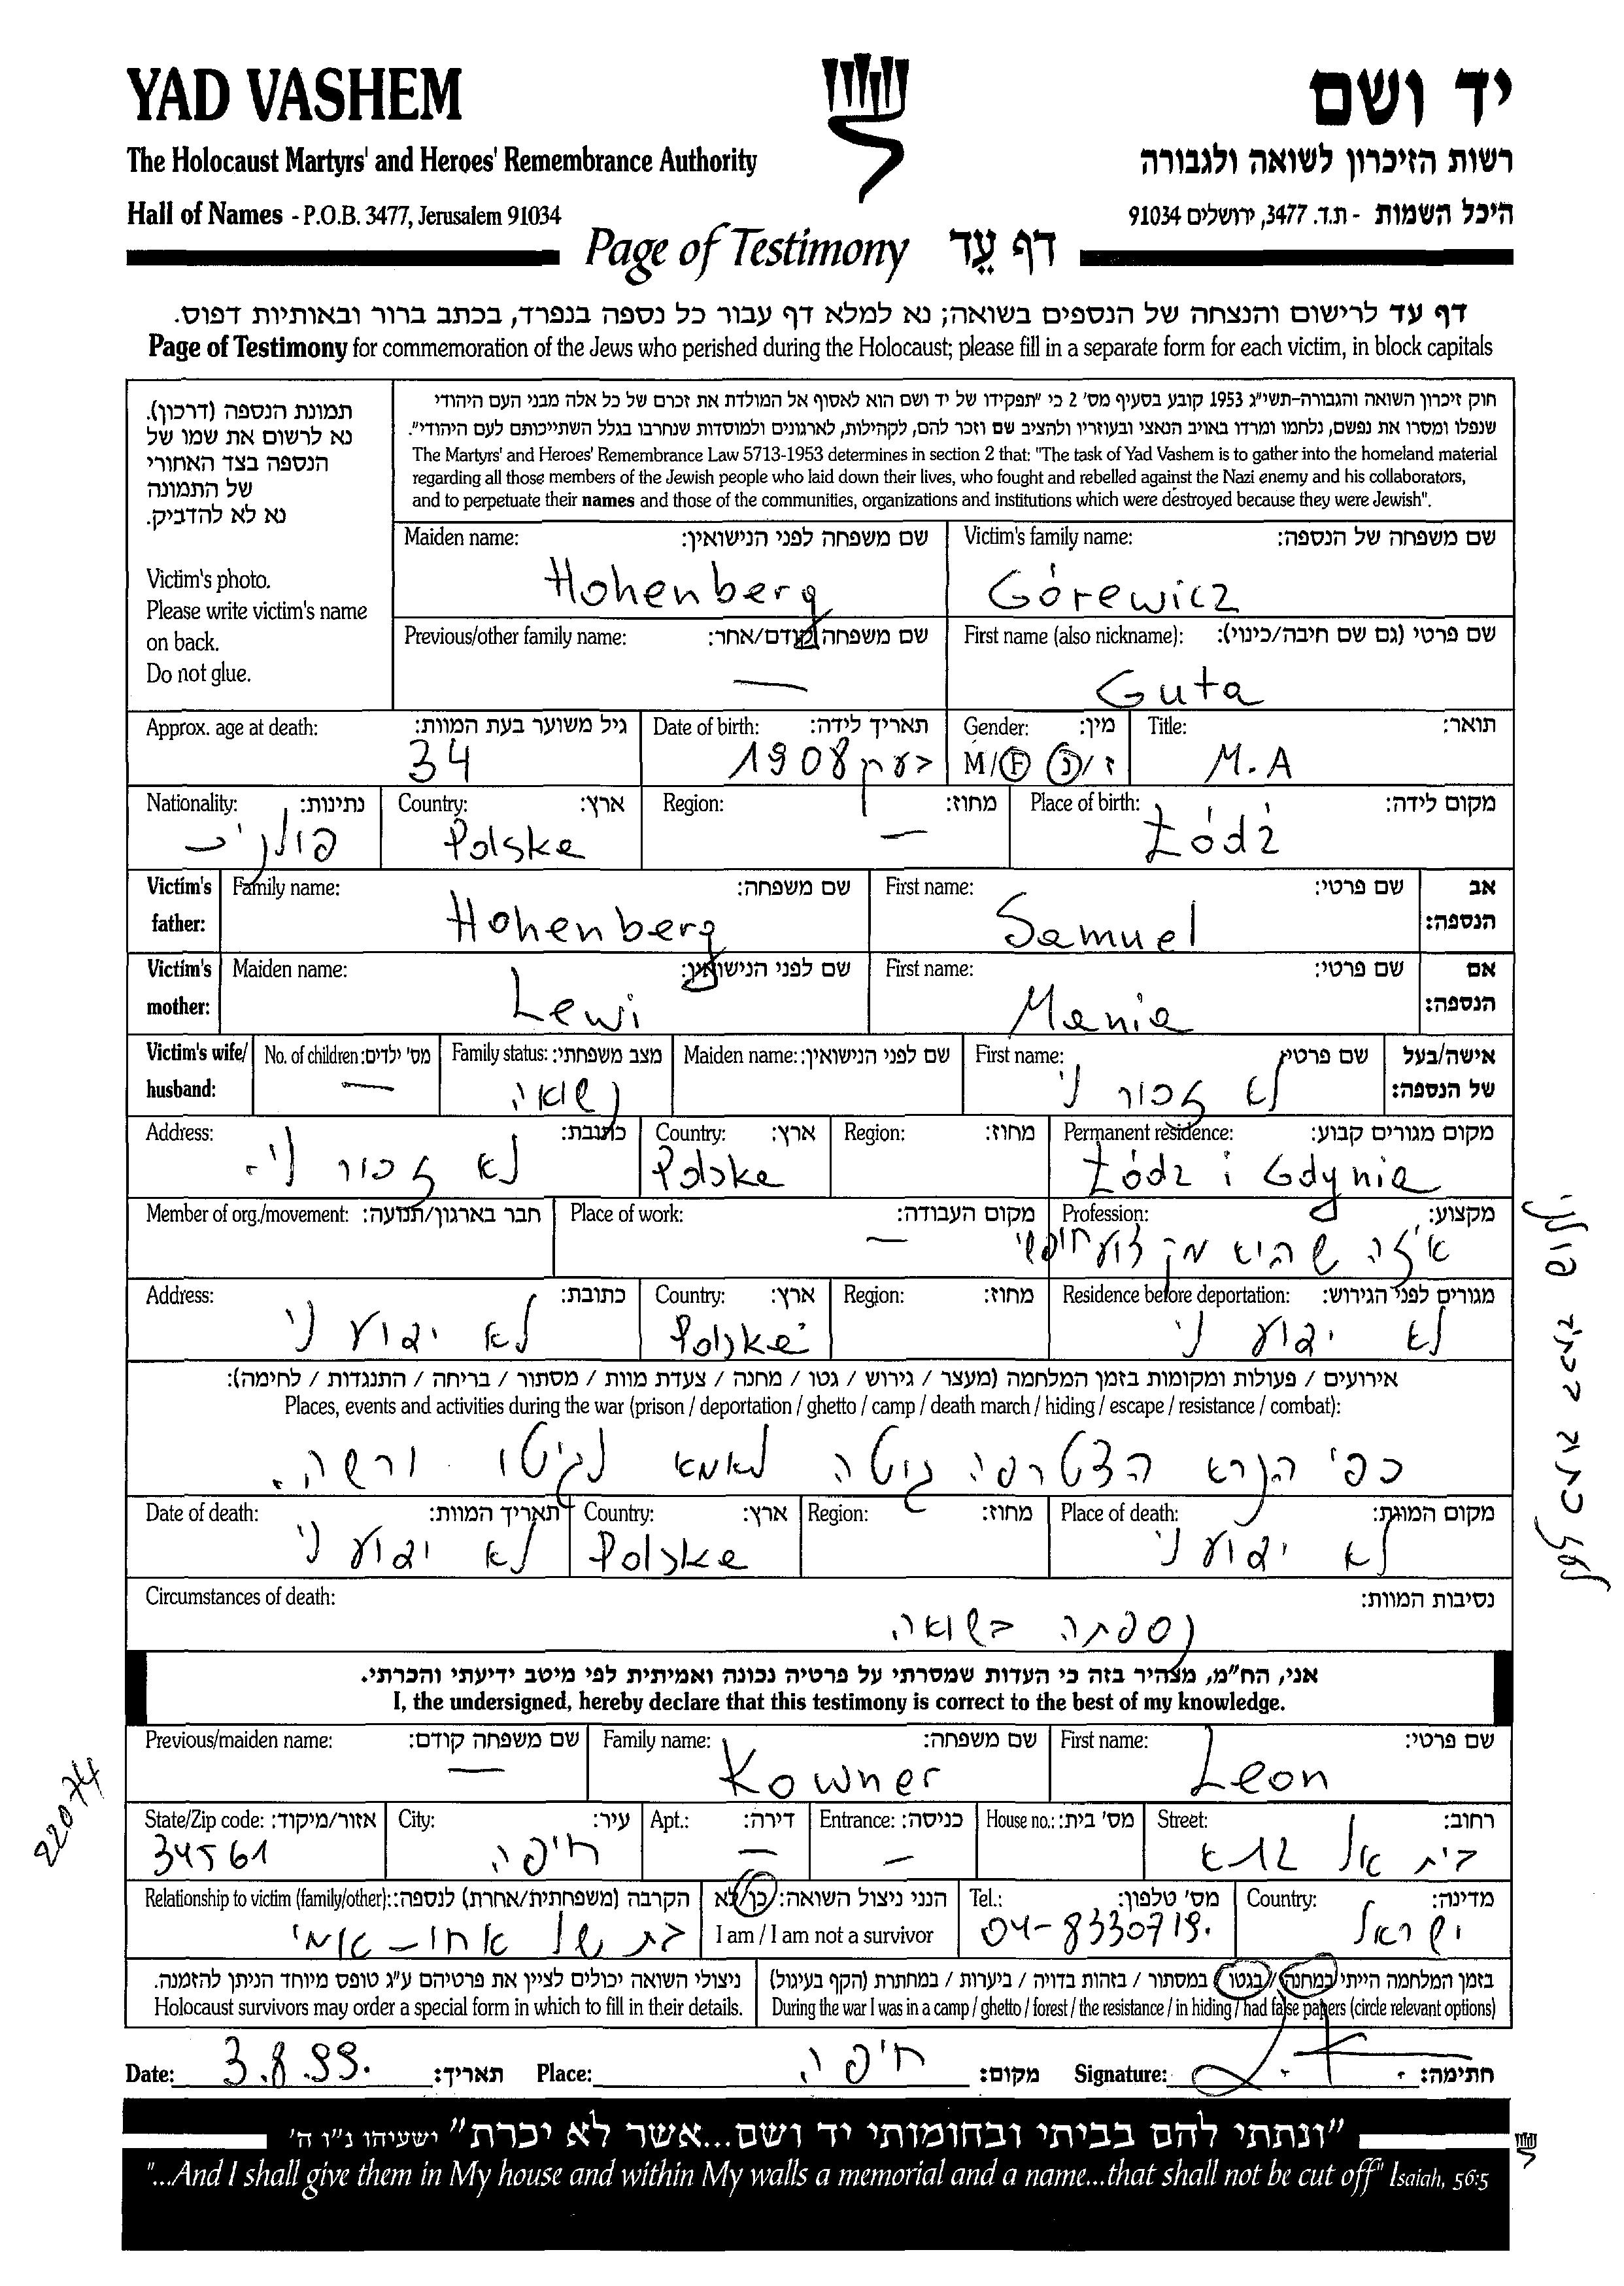 YAD VASHEM
יד ושם
The Holocaust Martyrs' and Heroes' Remembrance Authority
רשות הזיכרון לשואה ולגבורה
Hall of Names - P.O.B. 3477, Jerusalem 91034
היכל השמות - ת.ד. 3477, ירושלים 91034
Page of Testimony דף עֵד
דף עד לרישום והנצחה של הנספים בשואה; נא למלא דף עבור כל נספה בנפרד, בכתב ברור ובאותיות דפוס.
Page of Testimony for commemoration of the Jews who perished during the Holocaust; please fill in a separate form for each victim, in block capitals
תמונת הנספה (דרכון).
נא לרשום את שמו של
הנספה בצד האחורי
של התמונה
נא לא להדביק.
Victim's photo.
Please write victim's name
on back.
Do not glue.
חוק זיכרון השואה והגבורה-תשי"ג 1953 קובע בסעיף מס' 2 כי "תפקידו של יד ושם הוא לאסוף אל המולדת את זכרם של כל אלה מבני העם היהודי
שנפלו ומסרו את נפשם, נלחמו ומרדו באויב הנאצי ובעוזריו ולהציב שם וזכר להם, לקהילות, לארגונים ולמוסדות שנחרבו בגלל השתייכותם לעם היהודי".
The Martyrs' and Heroes' Remembrance Law 5713-1953 determines in section 2 that: "The task of Yad Vashem is to gather into the homeland material
regarding all those members of the Jewish people who laid down their lives, who fought and rebelled against the Nazi enemy and his collaborators,
and to perpetuate their names and those of the communities, organizations and institutions which were destroyed because they were Jewish".
Maiden name: שם משפחה לפני הנישואין: Victim's family name: שם משפחה של הנספה:
Hohenberg Górewicz
Previous/other family name: שם משפחה קודם/אחר: First name (also nickname): שם פרטי (גם שם חיבה/כינוי):
— Guta
Approx. age at death: גיל משוער בעת המוות: Date of birth: תאריך לידה: Gender: מין: Title: תואר:
34 בערך 1908 M/F ז/נ M.A
Nationality: נתינות: Country: ארץ: Region: מחוז: Place of birth: מקום לידה:
Polska — Łódź
Victim's father: Family name: שם משפחה: First name: שם פרטי: אב הנספה:
Hohenberg Samuel
Victim's mother: Maiden name: שם לפני הנישואין: First name: שם פרטי: אם הנספה:
Lewi Mania
Victim's wife/husband: No. of children: מס' ילדים: Family status: מצב משפחתי: Maiden name: שם לפני הנישואין: First name: שם פרטי: אישה/בעל של הנספה:
— נשואה לא זכור לי
Address: כתובת: Country: ארץ: Region: מחוז: Permanent residence: מקום מגורים קבוע:
לא זכור לי. Polska Łódź i Gdynia
Member of org./movement: חבר בארגון/תנועה: Place of work: מקום העבודה: Profession: מקצוע:
— איזה שהיא מקצוע חופשי
Address: כתובת: Country: ארץ: Region: מחוז: Residence before deportation: מגורים לפני הגירוש:
לא ידוע לי Polska לא ידוע לי
אירועים / פעולות ומקומות בזמן המלחמה (מעצר / גירוש / גטו / מחנה / צעדת מוות / מסתור / בריחה / התנגדות / לחימה):
Places, events and activities during the war (prison / deportation / ghetto / camp / death march / hiding / escape / resistance / combat):
כפי הנרא הצטרפה גוטה לאמא לגיטו ורשה.
Date of death: תאריך המוות: Country: ארץ: Region: מחוז: Place of death: מקום המוות:
לא ידוע לי Polska לא ידוע לי
Circumstances of death: נסיבות המוות:
נספתה בשואה
אני, הח"מ, מצהיר בזה כי העדות שמסרתי על פרטיה נכונה ואמיתית לפי מיטב ידיעתי והכרתי.
I, the undersigned, hereby declare that this testimony is correct to the best of my knowledge.
Previous/maiden name: שם משפחה קודם: Family name: שם משפחה: First name: שם פרטי:
— Kowner Leon
State/Zip code: אזור/מיקוד: City: עיר: Apt.: דירה: Entrance: כניסה: House no.: מס' בית: Street: רחוב:
34561 חיפה — — בית אל 12א
Relationship to victim (family/other): הקרבה (משפחתית/אחרת) לנספה: הנני ניצול השואה: כן/לא Tel.: מס' טלפון: Country: מדינה:
בת של אחו-אמי I am / I am not a survivor 04-8330719. ישראל
ניצולי השואה יכולים לציין את פרטיהם ע"ג טופס מיוחד הניתן להזמנה.
Holocaust survivors may order a special form in which to fill in their details.
בזמן המלחמה הייתי במחנה / בגטו / במסתור / בזהות בדויה / ביערות / במחתרת (הקף בעיגול)
During the war I was in a camp / ghetto / forest / the resistance / in hiding / had false papers (circle relevant options)
Date: 3.8.99. תאריך: Place: חיפה מקום: Signature: חתימה:
"ונתתי להם בביתי ובחומותי יד ושם...אשר לא יכרת" ישעיהו נ"ו ה'
"...And I shall give them in My house and within My walls a memorial and a name...that shall not be cut off" Isaiah, 56:5
22074